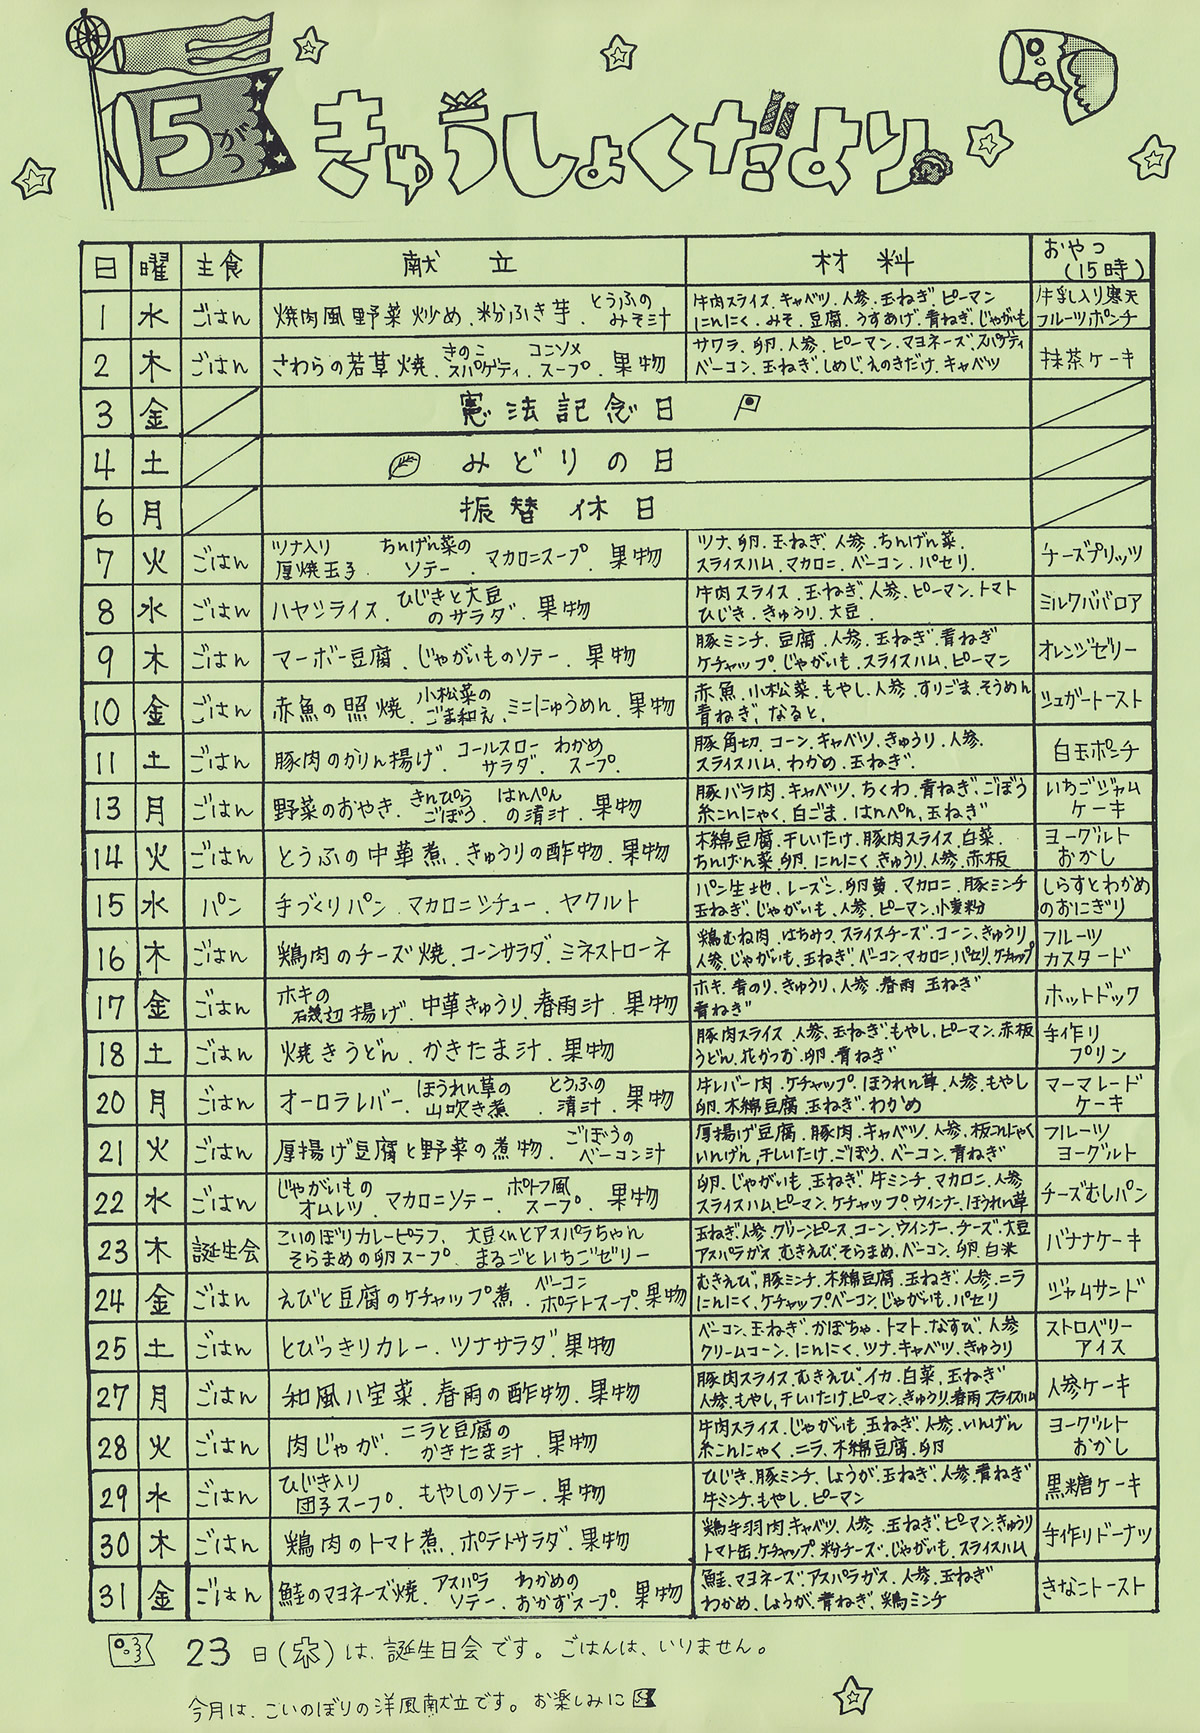 5がつ
きゅうしょくだより
日 曜 主食 献立 材料 おやつ(15時)
1 水 ごはん 焼肉風野菜炒め.粉ふき芋.とうふのみそ汁 牛肉スライス.キャベツ.人参.玉ねぎ.ピーマン 牛乳入り寒天
にんにく.みそ.豆腐.うすあげ.青ねぎ.じゃがいも フルーツポンチ
2 木 ごはん さわらの若草焼.きのこスパゲティ.コンソメスープ.果物 サワラ.卵.人参.ピーマン.マヨネーズ.スパゲティ 抹茶ケーキ
ベーコン.玉ねぎ.しめじ.えのきだけ.キャベツ
3 金 憲法記念日
4 土 みどりの日
6 月 振替休日
7 火 ごはん ツナ入り厚焼玉子.ちんげん菜のソテー.マカロニスープ.果物 ツナ.卵.玉ねぎ.人参.ちんげん菜. チーズプリッツ
スライスハム.マカロニ.ベーコン.パセリ.
8 水 ごはん ハヤシライス.ひじきと大豆のサラダ.果物 牛肉スライス.玉ねぎ.人参.ピーマン.トマト ミルクババロア
ひじき.きゅうり.大豆.
9 木 ごはん マーボー豆腐.じゃがいものソテー.果物 豚ミンチ.豆腐.人参.玉ねぎ.青ねぎ オレンジゼリー
ケチャップ.じゃがいも.スライスハム.ピーマン
10 金 ごはん 赤魚の照焼.小松菜のごま和え.ミニにゅうめん.果物 赤魚.小松菜.もやし.人参.すりごま.そうめん シュガートースト
青ねぎ.なると.
11 土 ごはん 豚肉のかりん揚げ.コールスローサラダ.わかめスープ. 豚角切.コーン.キャベツ.きゅうり.人参. 白玉ポンチ
スライスハム.わかめ.玉ねぎ.
13 月 ごはん 野菜のおやき.きんぴらごぼう.はんぺんの清汁.果物 豚バラ肉.キャベツ.ちくわ.青ねぎ.ごぼう いちごジャム
糸こんにゃく.白ごま.はんぺん.玉ねぎ ケーキ
14 火 ごはん とうふの中華煮.きゅうりの酢物.果物 木綿豆腐.干しいたけ.豚肉スライス.白菜 ヨーグルト
ちんげん菜.卵.にんにく.きゅうり.人参.赤板 おかし
15 水 パン 手づくりパン.マカロニシチュー.ヤクルト パン生地.レーズン.卵黄.マカロニ.豚ミンチ しらすとわかめ
玉ねぎ.じゃがいも.人参.ピーマン.小麦粉 のおにぎり
16 木 ごはん 鶏肉のチーズ焼.コーンサラダ.ミネストローネ 鶏むね肉.はちみつ.スライスチーズ.コーン.きゅうり フルーツ
人参.じゃがいも.玉ねぎ.ベーコン.マカロニ.パセリ.ケチャップ カスタード
17 金 ごはん ホキの磯辺揚げ.中華きゅうり.春雨汁.果物 ホキ.青のり.きゅうり.人参.春雨 玉ねぎ ホットドック
青ねぎ
18 土 ごはん 焼きうどん.かきたま汁.果物 豚肉スライス.人参.玉ねぎ.もやし.ピーマン.赤板 手作り
うどん.花かつお.卵.青ねぎ プリン
20 月 ごはん オーロラレバー.ほうれん草の山吹き煮.とうふの清汁.果物 牛レバー肉.ケチャップ.ほうれん草.人参.もやし マーマレード
卵.木綿豆腐.玉ねぎ.わかめ ケーキ
21 火 ごはん 厚揚げ豆腐と野菜の煮物.ごぼうのベーコン汁 厚揚げ豆腐.豚肉.キャベツ.人参.板こんにゃく フルーツ
いんげん.干しいたけ.ごぼう.ベーコン.青ねぎ ヨーグルト
22 水 ごはん じゃがいものオムレツ.マカロニソテー.ポトフ風スープ.果物 卵.じゃがいも.玉ねぎ.牛ミンチ.マカロニ.人参 チーズむしパン
スライスハム.ピーマン.ケチャップ.ウインナー.ほうれん草
23 木 誕生会 こいのぼりカレーピラフ.大豆くんとアスパラちゃん 玉ねぎ.人参.グリーンピース.コーン.ウインナー.チーズ.大豆 バナナケーキ
そらまめの卵スープ.まるごといちごゼリー アスパラガス.むきえび.そらまめ.ベーコン.卵.白米
24 金 ごはん えびと豆腐のケチャップ煮.ベーコンポテトスープ.果物 むきえび.豚ミンチ.木綿豆腐.玉ねぎ.人参.ニラ ジャムサンド
にんにく.ケチャップ.ベーコン.じゃがいも.パセリ
25 土 ごはん とびっきりカレー.ツナサラダ.果物 ベーコン.玉ねぎ.かぼちゃ.トマト.なすび.人参 ストロベリー
クリームコーン.にんにく.ツナ.キャベツ.きゅうり アイス
27 月 ごはん 和風八宝菜.春雨の酢物.果物 豚肉スライス.むきえび.イカ.白菜.玉ねぎ 人参ケーキ
人参.もやし.干しいたけ.ピーマン.きゅうり.春雨 スライスハム
28 火 ごはん 肉じゃが.ニラと豆腐のかきたま汁.果物 牛肉スライス.じゃがいも.玉ねぎ.人参.いんげん ヨーグルト
糸こんにゃく.ニラ.木綿豆腐.卵 おかし
29 水 ごはん ひじき入り団子スープ.もやしのソテー.果物 ひじき.豚ミンチ.しょうが.玉ねぎ.人参.青ねぎ 黒糖ケーキ
牛ミンチ.もやし.ピーマン
30 木 ごはん 鶏肉のトマト煮.ポテトサラダ.果物 鶏手羽肉.キャベツ.人参.玉ねぎ.ピーマン.きゅうり 手作りドーナツ
トマト缶.ケチャップ.粉チーズ.じゃがいも.スライスハム
31 金 ごはん 鮭のマヨネーズ焼.アスパラソテー.わかめのおかずスープ.果物 鮭.マヨネーズ.アスパラガス.人参.玉ねぎ きなこトースト
わかめ.しょうが.青ねぎ.鶏ミンチ
23日(木)は、誕生日会です。ごはんは、いりません。
今月は、こいのぼりの洋風献立です。お楽しみに